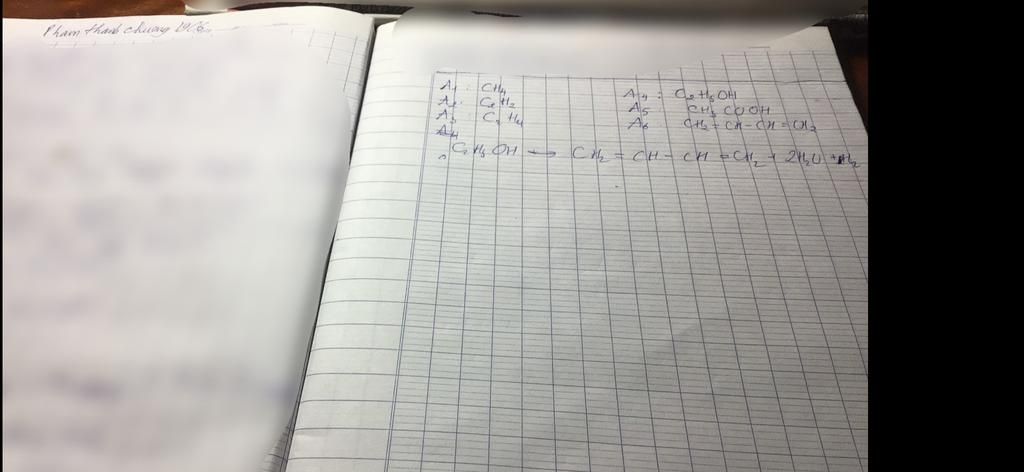 Pham thanh chuong
A1 : CH4
A2 : C2H2
A3 : C2H4
A4 : C2H5OH
A5 CH3COOH
A6 CH2 = CH - CH = CH2
C2H5OH → CH2 = CH - CH = CH2 + 2H2O + H2